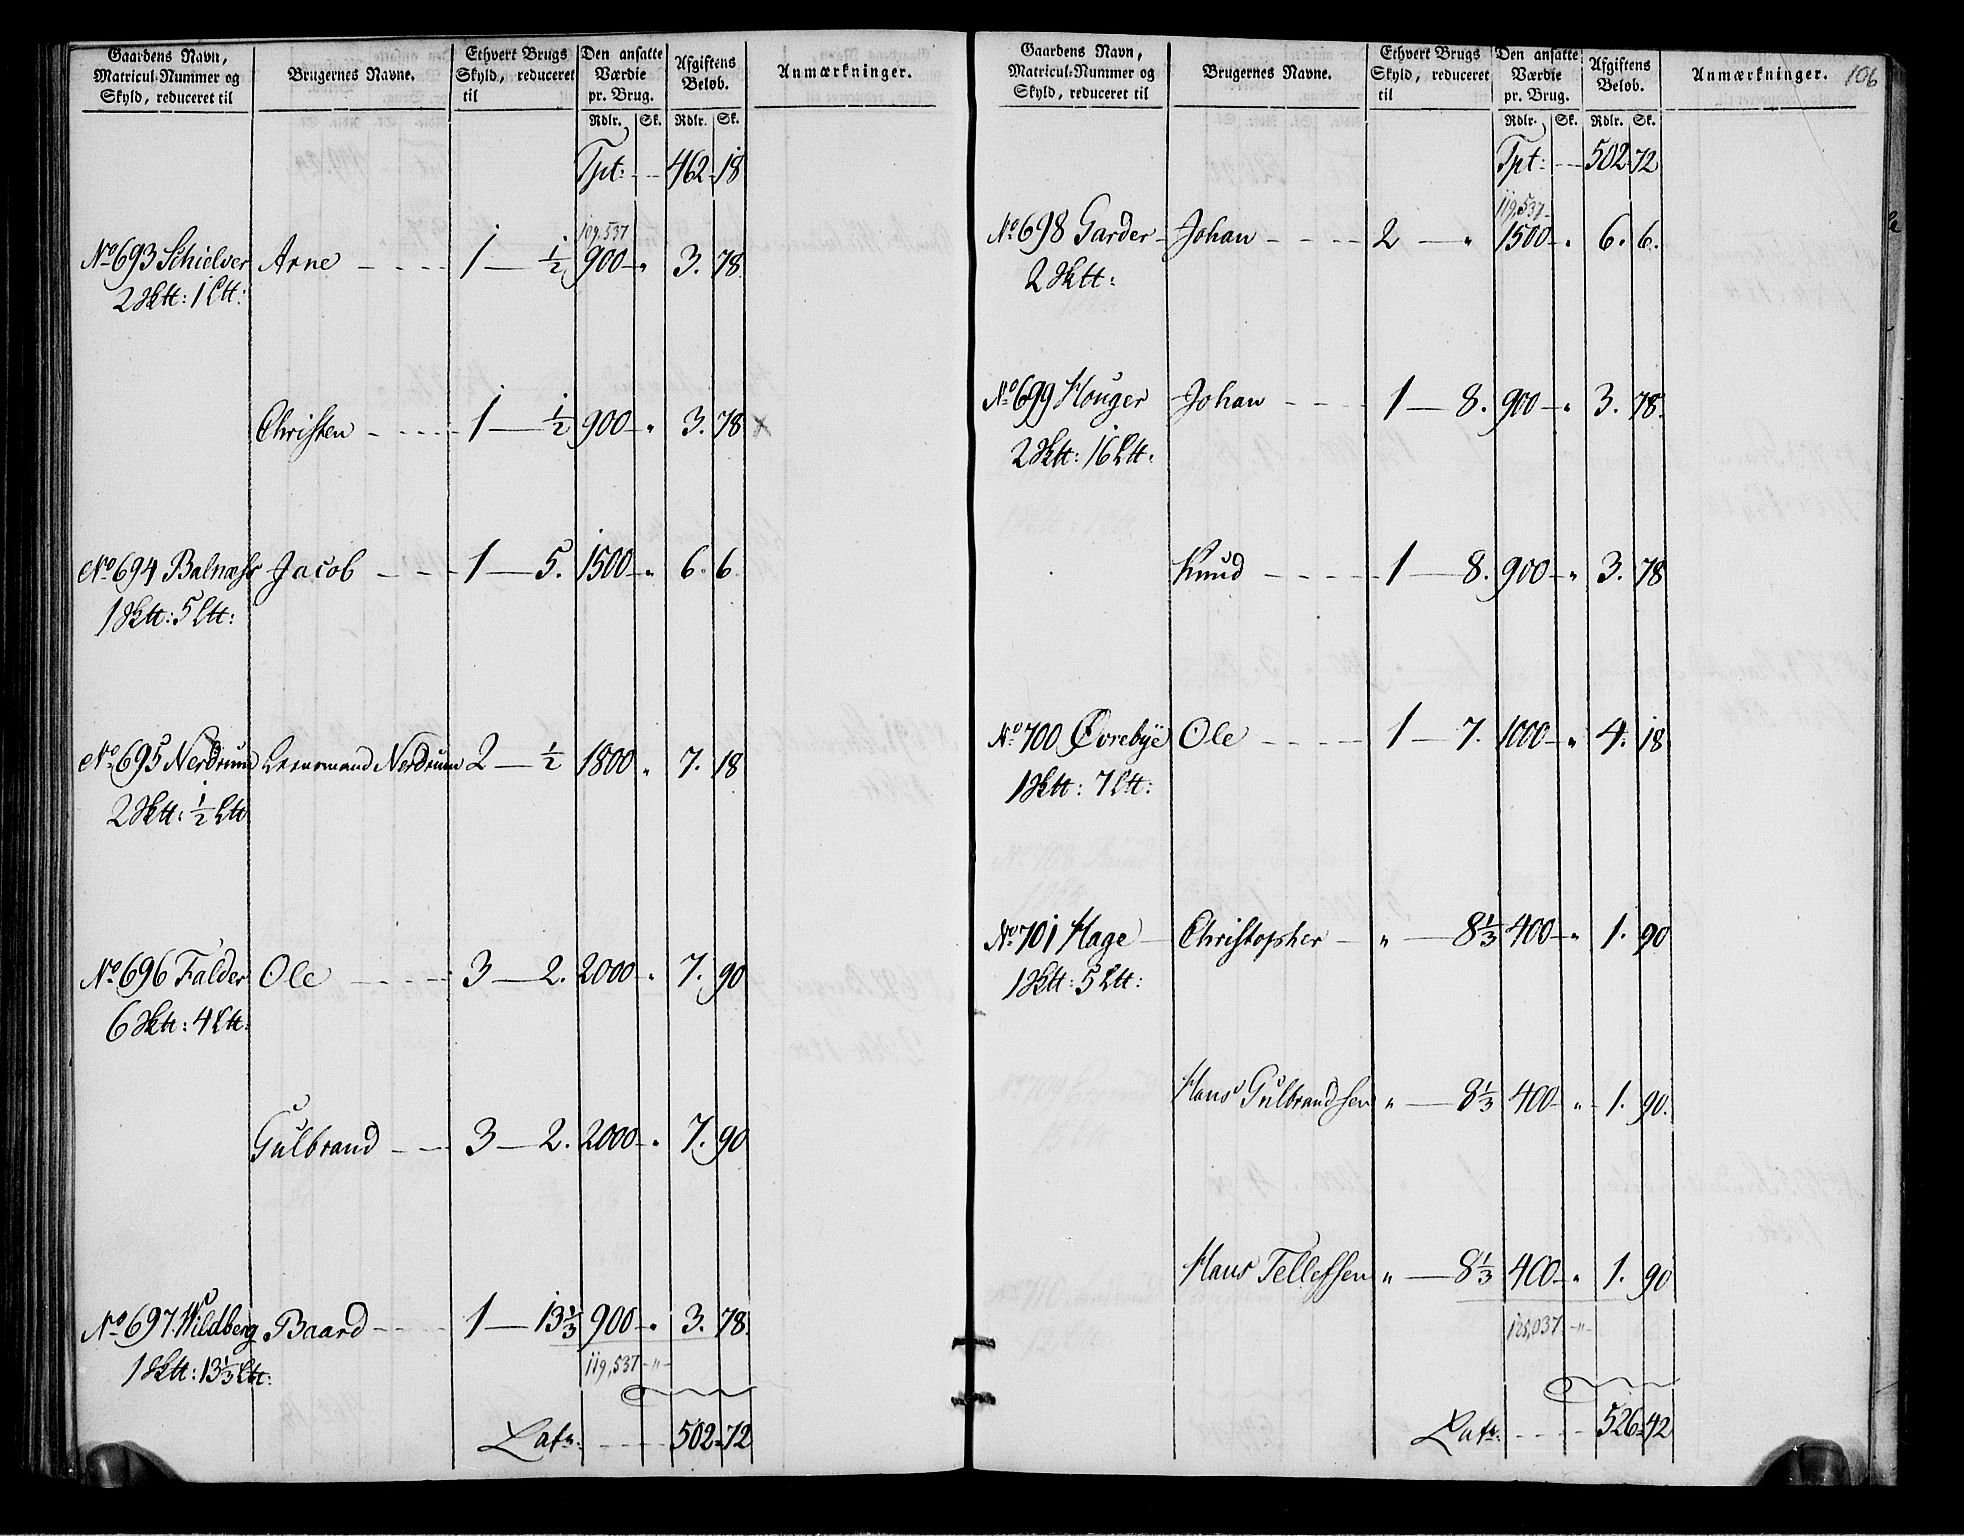 Gaardens Navn, Matricul-Nummer og Skyld, reduceret til | Brugernes Navne. | Ethvert Brugs Skyld, reduceret til | Den ansatte Værdie pr. Brug. | Afgiftens Beløb. | Anmærkninger.
Rdlr. | Sk. | Rdlr. | Sk.
Tpt: - - 462 - 18
109,537
No 693 Schielver Arne - - - - 1 — ½ 900 - " 3. 78.
2 Sktt: 1 Ltt:
Christen - - - - 1 — ½ 900 - " 3. 78 x
No 694 Balnæss Jacob - - - 1 — 5. 1500 - " 6. 6.
1 Sktt: 5 Ltt:
No 695 Nerdrum Leensmand Nerdrum 2 — ½ 1800 " 7. 18
2 Sktt: ½ Ltt
No 696 Falder Ole - - - - 3 — 2. 2000 - " 7. 90
6 Sktt: 4 Ltt:
Gulbrand - - - 3 — 2. 2000 - " 7. 90
No 697. Wildberg Baard - - - - 1 — 13⅓ 900 - " 3. 78.
1 Sktt: 13⅓ Ltt:
119,537 - " -
Latr: - - - - 502 - 72
Gaardens Navn, Matricul-Nummer og Skyld, reduceret til | Brugernes Navne. | Ethvert Brugs Skyld, reduceret til | Den ansatte Værdie pr. Brug. | Afgiftens Beløb. | Anmærkninger. 106
Rdlr. | Sk. | Rdlr. | Sk.
Tpt: - - 502 - 72
119,537 -
No 698 Garder - Johan - - - - 2 — " 1500 - " 6. 6.
2 Sktt:
No 699 Houger Johan - - - - 1 — 8. 900 - " 3. 78.
2 Sktt: 16 Ltt.
Knud - - - - - 1 — 8. 900 - " 3. 78
No 700 Øvrebye Ole - - - - 1 — 7. 1000 - " 4. 18
1 Sktt: 7 Ltt:
No 701 Hage - Christopher - " — 8⅓ 400 - " 1. 90
1 Sktt: 5 Ltt:
Hans Gulbrandsen " — 8⅓ 400 - " - 1. 90.
Hans Tellefsen " — 8⅓ 400 - " 1. 90
125,037 - " -
Latr: - - - - 526 - 42